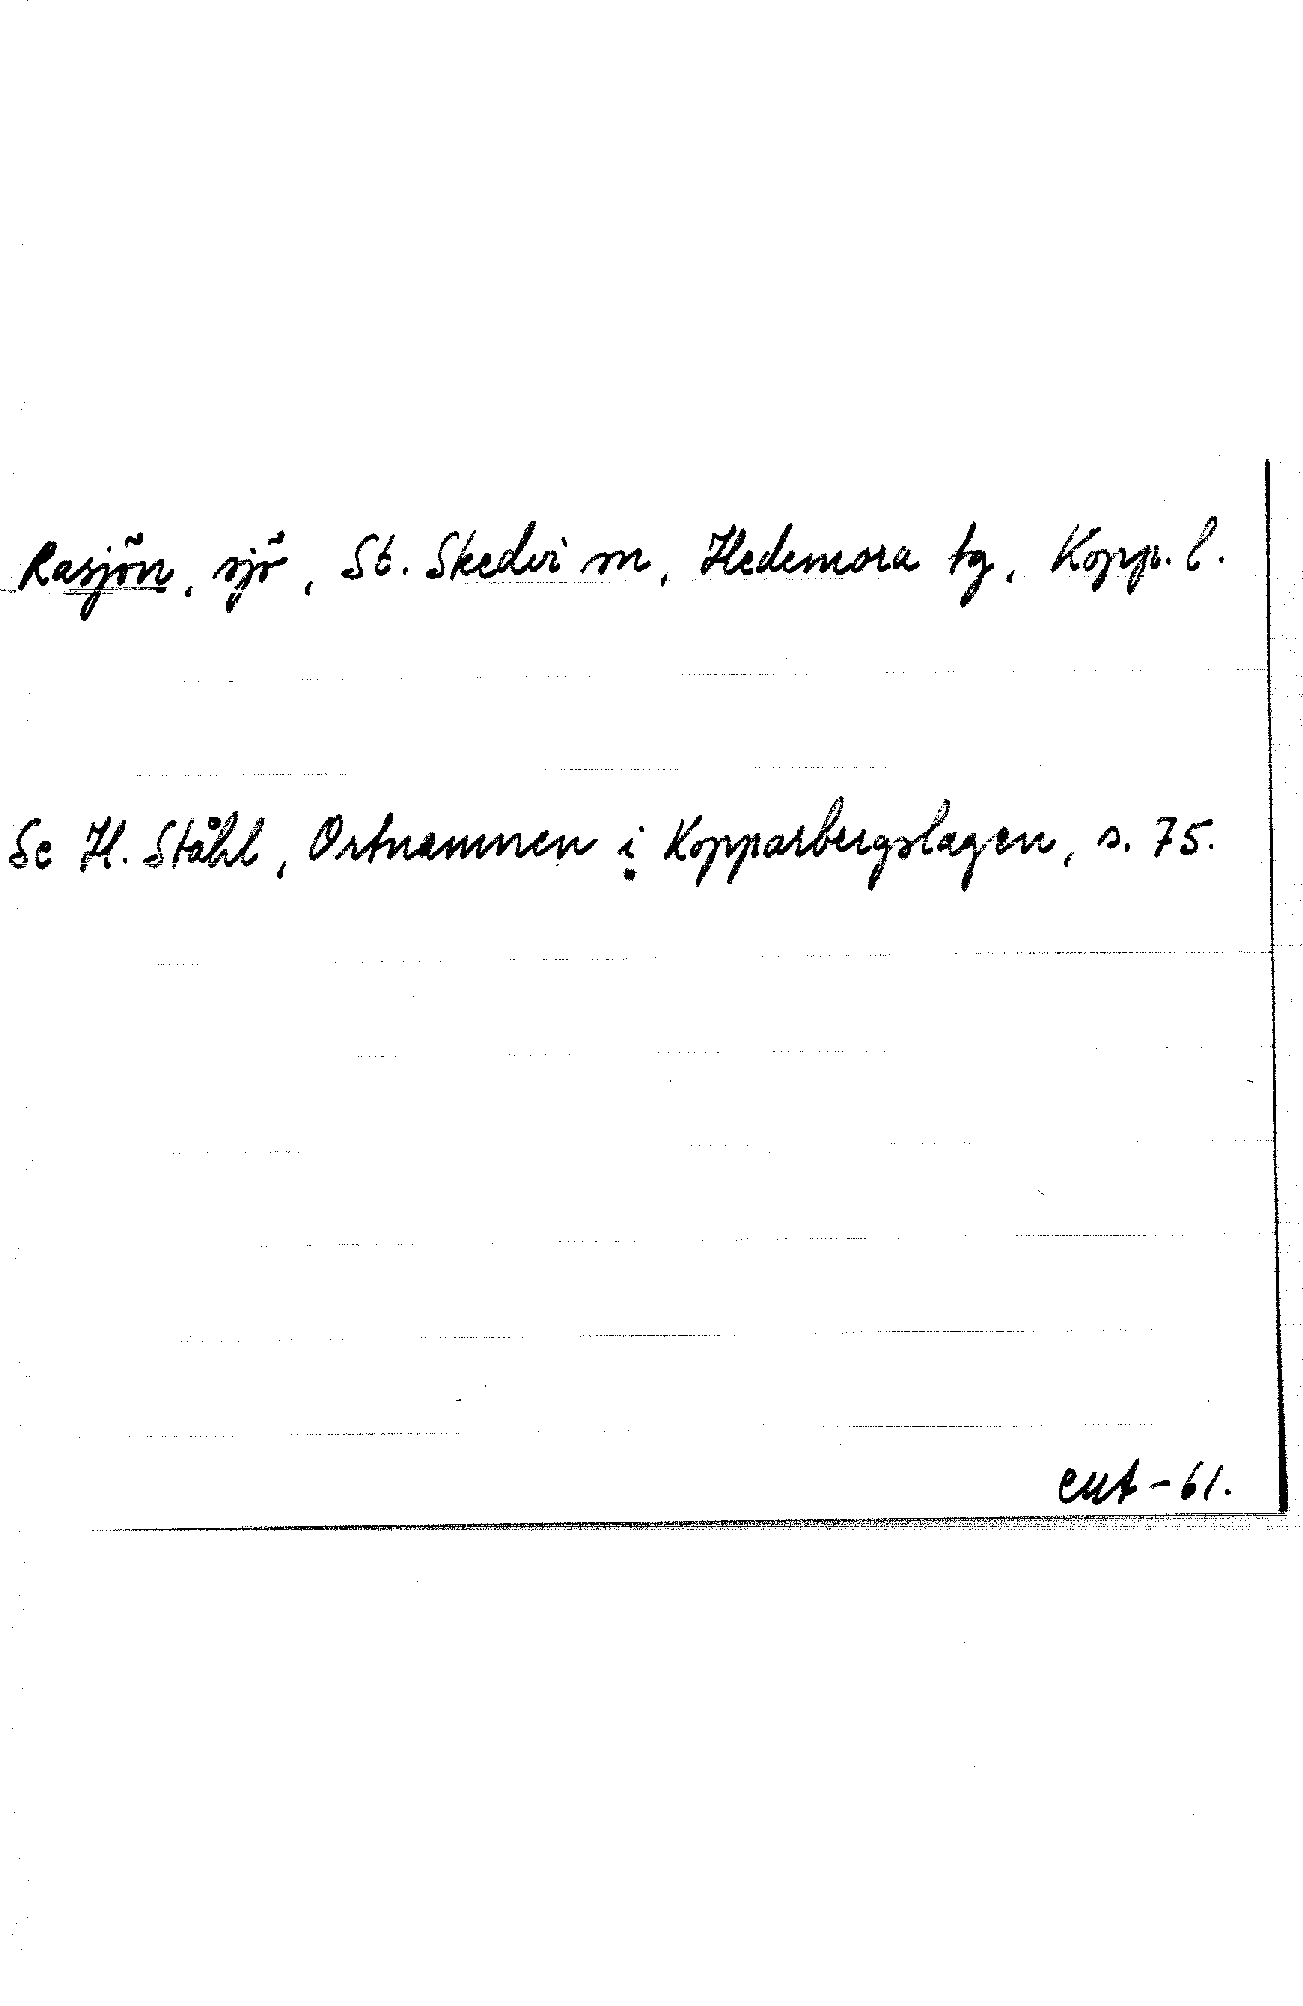 Rasjön, sjö, St. Skedvi sn, Hedemora tg, Kopp. l.
Se H. Ståhl, Ortnamnen i Kopparbergslagen, s. 75.
-61.